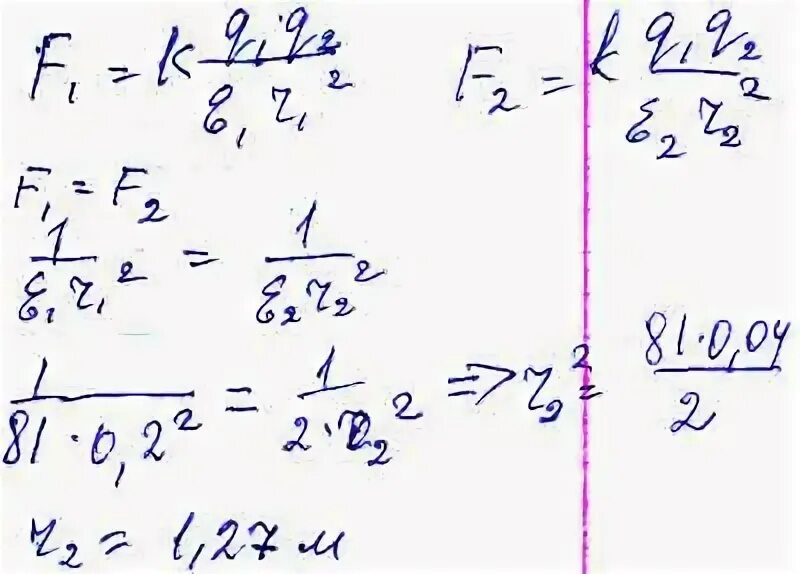 F₁ = k q₁q₂ / ε₁r₁² F₂ = k q₁q₂ / ε₂r₂²
F₁ = F₂
1 / ε₁r₁² = 1 / ε₂r₂²
1 / 81·0,2² = 1 / 2·r₂² => r₂² = 81·0,04 / 2
r₂ = 1,27 м